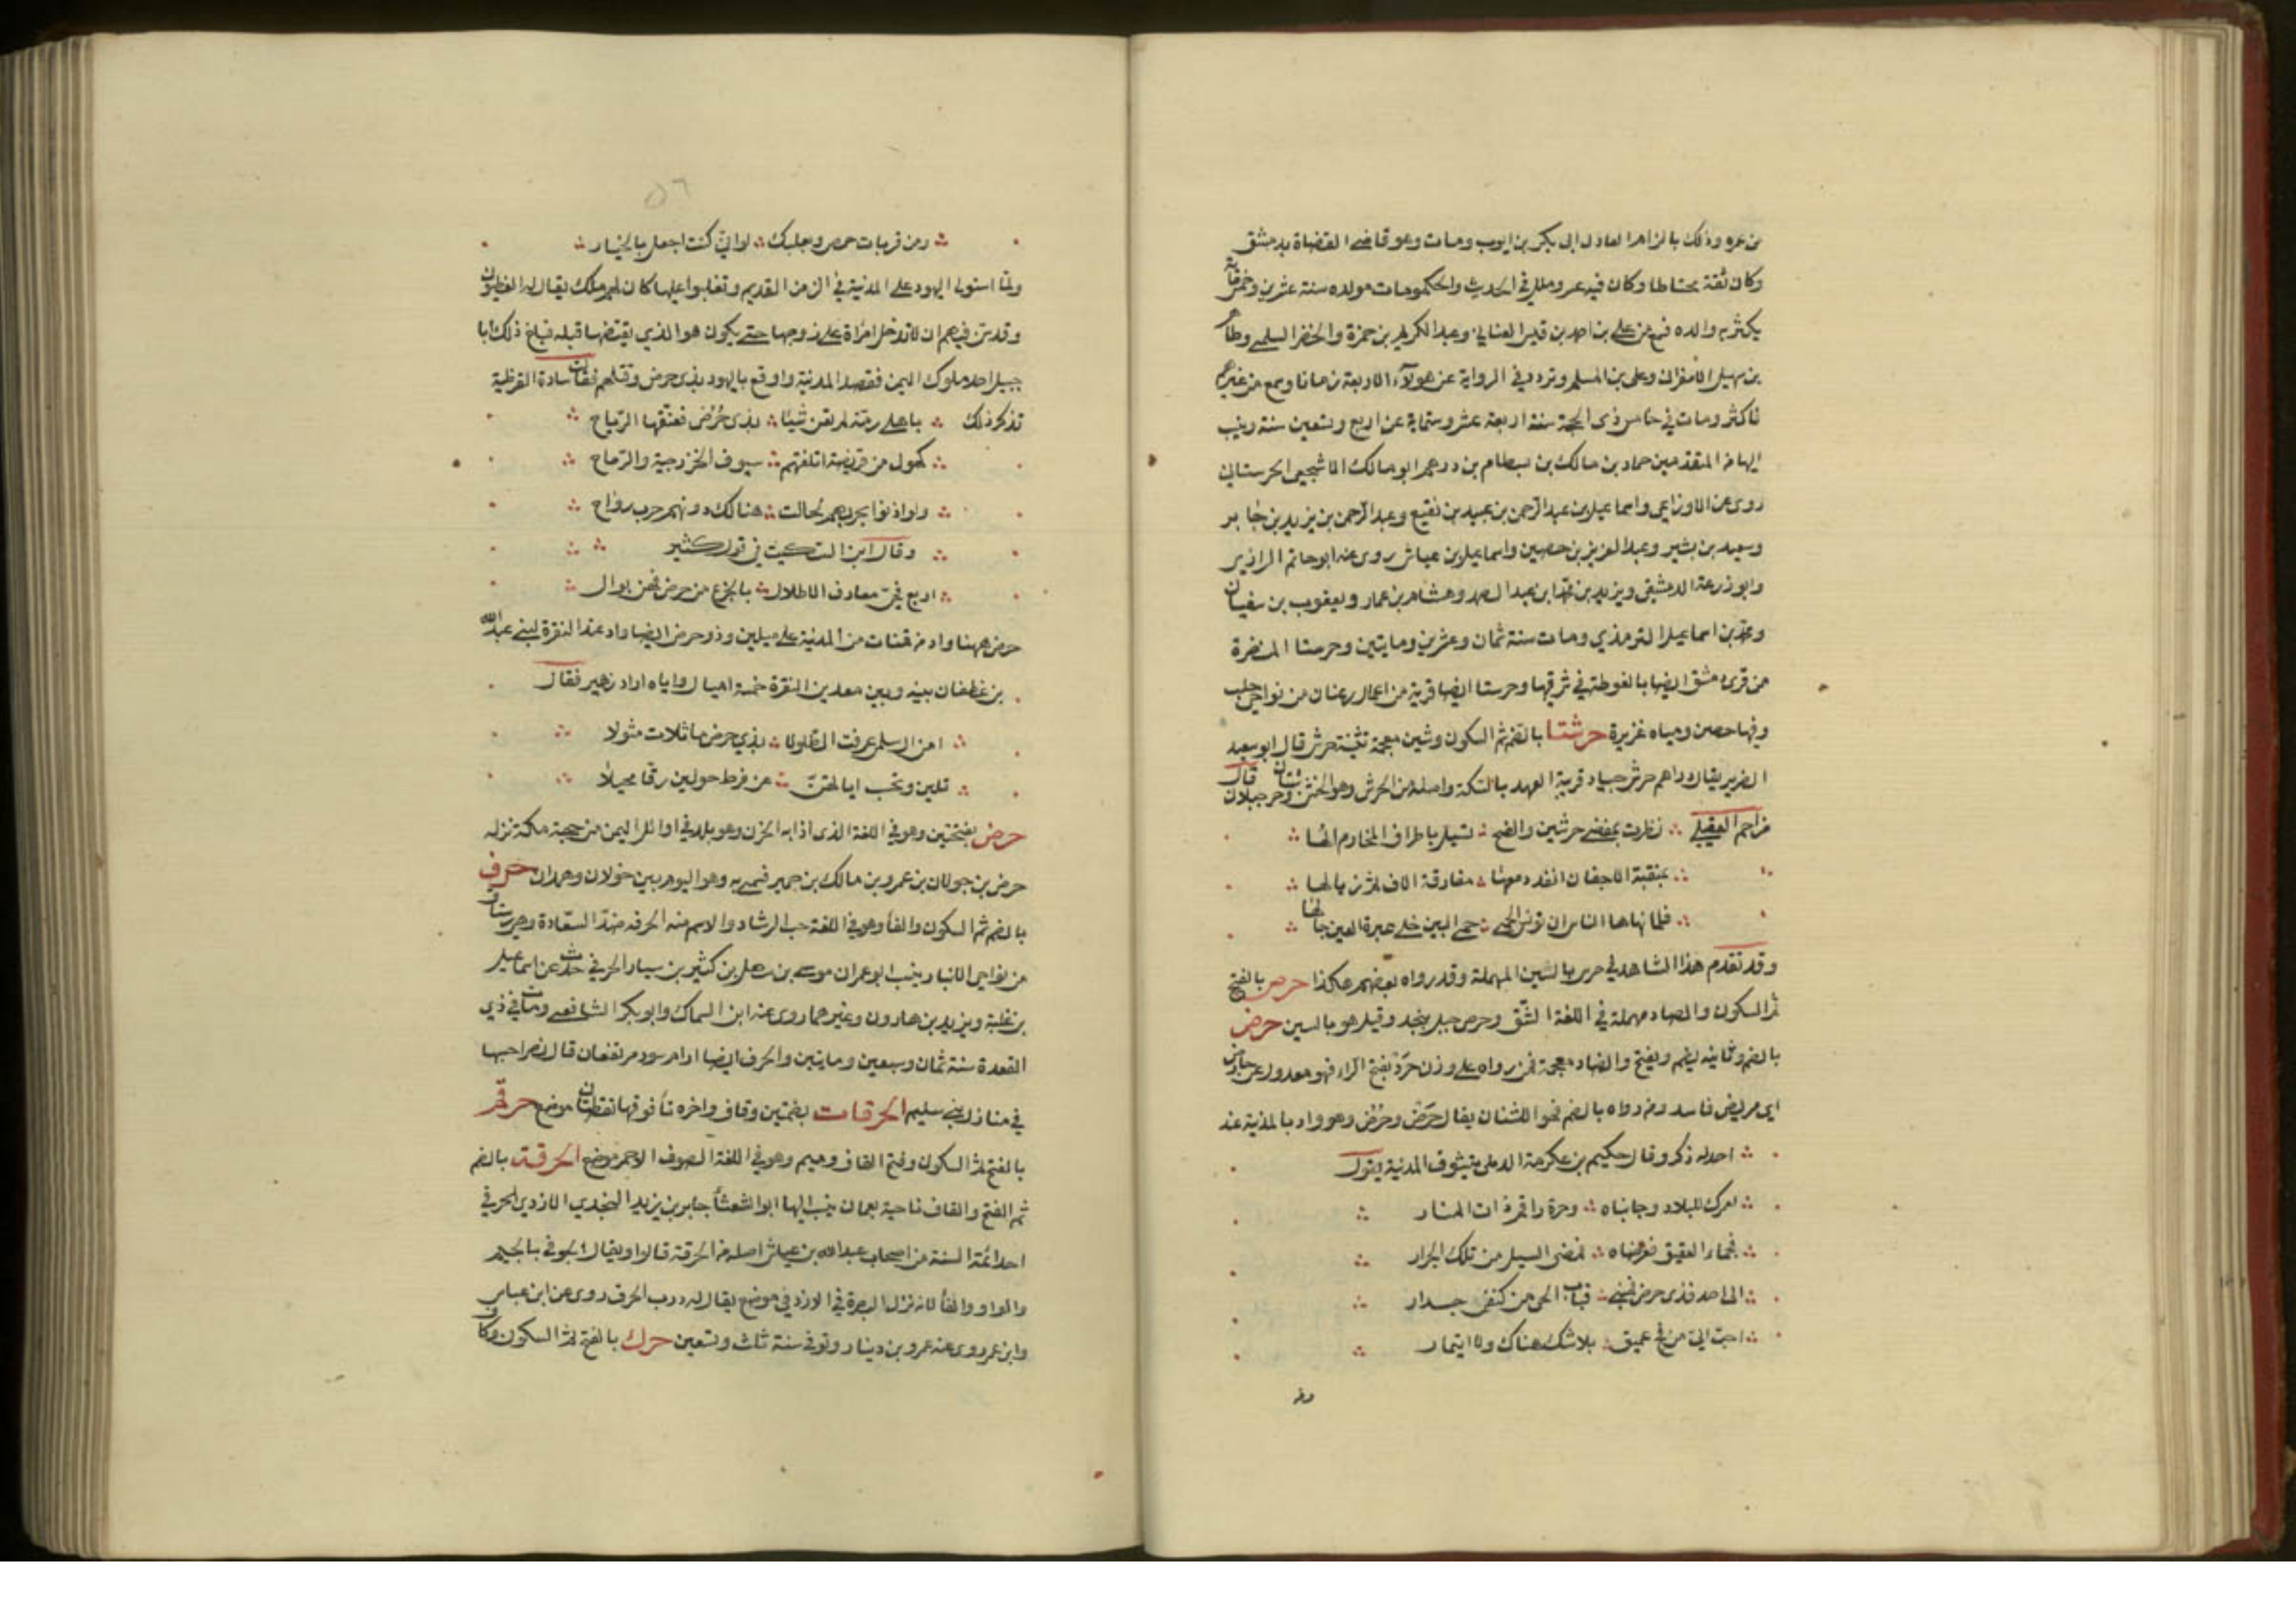 من عمره وذلك بالزاهر العادل ابى بكر بن ايوب ومات وهو قاضي القضاة بدمشق
وكان ثقة محتاطا وكان فيه عسر وملل في الحديث والحكومات مولده سنة عشرين وخمسماية
بكثر به والده فسمع من على بن احمد بن قيس الغسانى وعبد الكريم بن حمزة والخضر السلمى وطاهر
بن سهيل الاسفراينى وعلى بن المسلم وتردد في الرواية عن هولآء الاربعة زمانا وسمع من غيرهم
فاكثر ومات في خامس ذى الحجة سنة اربعة عشر وستماية عن اربع وتسعين سنة وينسب
اليها من المتقدمين حماد بن مالك بن بسطام بن درهم ابو مالك الاشجعى الحرستانى
روى عن الاوزاعى واسماعيل بن عبد الرحمن بن عبيد بن نفيع وعبد الرحمن بن يزيد بن جابر
وسعيد بن بشير وعبد العزيز بن حصين واسماعيل بن عياش روى عنه ابو حاتم الرازى
وابو زرعة الدمشقى ويزيد بن محمد ابن عبد الصمد وهشام بن عمار ويعقوب بن سفيان
ومحمد بن اسماعيل الترمذي ومات سنة ثمان وعشرين ومايتين وحرستا المنضرة
من قرى دمشق ايضا بالغوطة في شرقيها وحرستا ايضا قرية من اعمال رعبان من نواحى حلب
وفيها حصن ومياه غزيرة حرشتا بالفتح ثم السكون وشين معجمة تثنية حرش قال ابو سعيد
الضرير يقال دراهم حرش جياد قريبة العهد بالسكة واصله من الحرش وهو الخشن وحرشتان جبلان قال
مزاحم العقيلى نظرت بمفضى حرشين والضحى تسيل باطراف المخارم الها
بمنقبة الاجفان انفد دمعها مفارقة الالاف ثم زيالها
فلما نهاها الناس ان تونس الحمى حمى البين خلى عبرة العين جالها
وقد تقدم هذا الشاهد في حرس بالسين المهملة وقد رواه بعضهم هكذا حرص بالفتح
ثم السكون والصاد مهملة في اللغة الشق وحرص جبل بنجد وقيل هو بالسين حرض
بالضم وثانيه يضم ويفتح والضاد معجمة فمن رواه على وزن جرذ بفتح الراء فهو معدول عن حارض
اى مريض فاسد ومن رواه بالضم فهو الاشنان يقال حرض وحرض وهو واد بالمدينة عند
احد له ذكر وقال حكيم بن عكرمة الديلى يتشوق المدينة يقول
لعمرك للبلاد وجانباه وحرة واقم ذات المنار
فجماء العقيق فعرضاه فمفضى السيل من تلك الحرار
الى احد فذى حرض فمبنى قباب الحى من كنفى جدار
احب الى من فج عميق بلا شك هناك ولا ايتمار
ومن
ومن قريات حمص وبعلبك لو انى كنت اجعل بالخيار
ولما استولى اليهود على المدينة في الزمن القديم وتغلبوا عليها كان لهم ملك يقال له الفطيون
وقد سن فيهم ان لا تدخل امراة على زوجها حتى يكون هو الذي يفتضها قبله فبلغ ذلك ابا
جبيل احد ملوك اليمن فقصد المدينة واوقع باليهود بذى حرض وقتلهم فقالت سادة القرظية
تذكر ذلك باهلى رمة لم تغن شيئا بذى حرض تعفيها الرياح
كهول من قريضة اتلفتهم سيوف الخزرجية والرماح
ولو اذنوا بحربهم لحالت هنالك دونهم حرب رداح
وقال ابن السكيت في قول كثير
اربع فحى معارف الاطلال بالجزع من حرض فهن بوال
حرض ههنا واد من قناة من المدينة على ميلين وذو حرض ايضا واد عند النقرة لبنى عبد الله
بن غطفان بينه وبين معدن النقرة خمسة اميال واياه اراد زهير فقال
امن آل سلمى عرفت الطلولا بذي حرض ماثلات مثولا
بلين وتحسب اياتهن عن فرط حولين رقا محيلا
حرض بفتحتين وهو في اللغة الذى اذابه الحزن وهو بلد في اوائل اليمن من جهة مكة نزله
حرض بن خولان بن عمرو بن مالك بن حمير فسمى به وهو اليوم بين خولان وهمدان حرف
بالضم ثم السكون والفآ وهو في اللغة حب الرشاد والاسم منه الحرفة ضد السعادة وهي رستاق
من نواحى الانبار ينسب ابو عمران موسى بن سهل بن كثير بن سيار الحرفي حدث عن اسماعيل
بن علية ويزيد بن هارون وغيرهما روى عنه ابن السماك وابو بكر الشافعى ومات في ذي
القعدة سنة ثمان وسبعين ومايتين والحرف ايضا ارام سود مرتفعان قال نصر احسبها
في منازل بني سليم الحرقات بضمتين وقاف واخره تآ فوقها نقطتان موضع حرقم
بالفتح ثم السكون وفتح القاف وميم وهو في اللغة الصوف الاحمر موضع الحرقة بالضم
ثم الفتح والقاف ناحية بعمان ينسب اليها ابو الشعثآ جابر بن يزيد اليحمدي الازدي الحرقى
احد ائمة السنة من اصحاب عبد الله بن عباس اصله من الحرقة قالوا ويقال الجوفي بالجيم
والواو والفآ لانه نزل البصرة في الازد في موضع يقال له درب الحرف روى عن ابن عباس
وابن عمر روى عنه عمرو بن دينار وتوفى سنة ثلث وتسعين حرك بالفتح ثم السكون وكاف